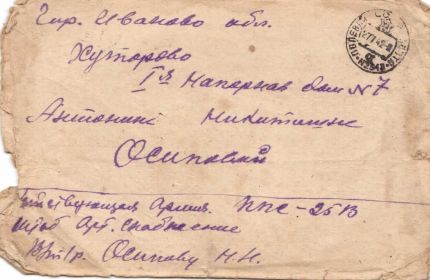 гор. Иваново обл.
Хуторово
Iя Напорная дом N 7
Антонине Никитишне
Осиповой
Действующая Армия. ППС-25В
Штаб Арт. снабжение
Осипову Н.Н.